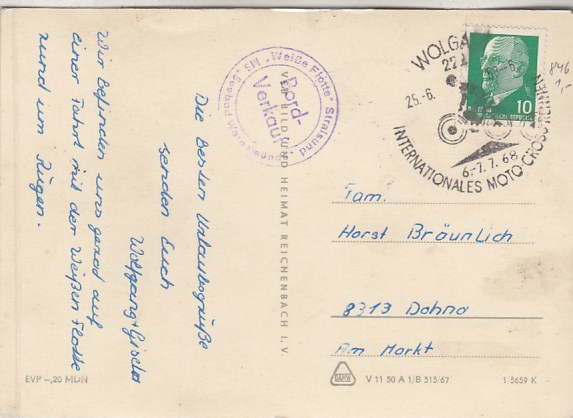 Wir befinden uns grad auf
einer Fahrt mit der Weißen Flotte
rund um Rügen.
Die Besten Urlaubsgrüße
senden Euch
Wolfgang + Gisela
VEB BILD UND HEIMAT REICHENBACH I. V.
SM „Weiße Flotte" Stralsund
Bord-
Verkauf
WOLGA
25.-6.
INTERNATIONALES MOTO-CROSSRENNEN
6.-7.7.68
10
846
1,-
Fam.
Horst Bräunlich
8313 Dohna
Am Markt
EVP –,20 MDN
V 11 50 A 1/B 515/67
1.5659 K